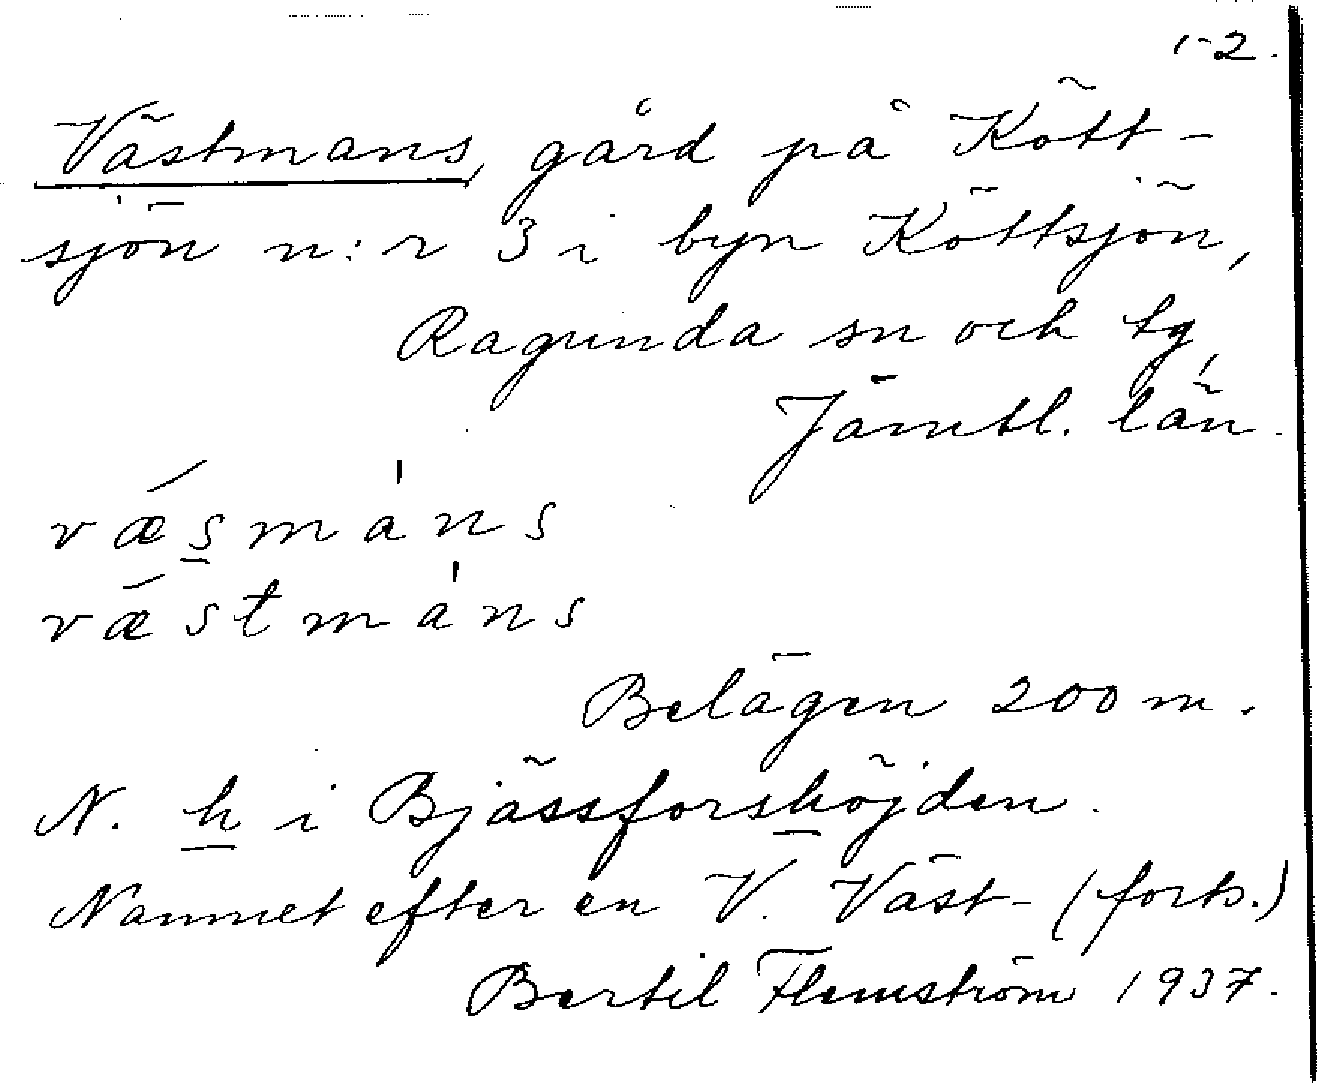 1-2.
Västmans, gård på Kött-
sjön n:r 3 i byn Köttsjön,
Ragunda sn och tg,
Jämtl. län.
væ´smàns
væ´stmàns
Belägen 200 m.
N. h i Bjässforshöjden.
Namnet efter en V. Väst- (forts.)
Bertil Flemström 1937.